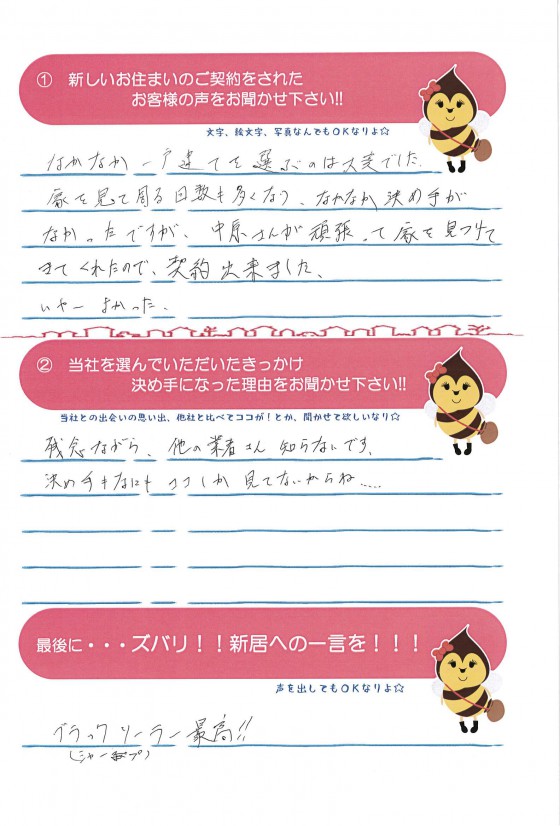 ① 新しいお住まいのご契約をされた
お客様の声をお聞かせ下さい!!
文字、絵文字、写真なんでもOKなりよ☆
なかなか一戸建てを選ぶのは大変でした。
家を見て周る日数も多くなり、なかなか決め手が
なかったですが、中原さんが頑張って家を見つけて
きてくれたので、契約出来ました。
いやー よかった。
② 当社を選んでいただいたきっかけ
決め手になった理由をお聞かせ下さい!!
当社との出会いの思い出、他社と比べてココが！とか、聞かせて欲しいなり☆
残念ながら、他の業者さん知らないです。
決め手もなにもココしか見てないからね.....
最後に・・・ズバリ！！新居への一言を！！！
声を出してもOKなりよ☆
ブラックソーラー最高!!
(シャープ)